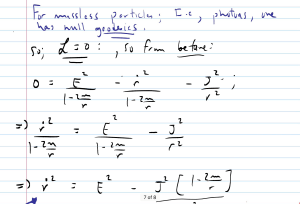 For massless particles; I.e., photons, one
has null geodesics.
So; L = 0 : , so from before:
0 = E² / (1 - 2m/r) - ṙ² / (1 - 2m/r) - J² / r² ;
=> ṙ² / (1 - 2m/r) = E² / (1 - 2m/r) - J² / r²
=> ṙ² = E² - J² [1 - 2m/r]
7 of 8